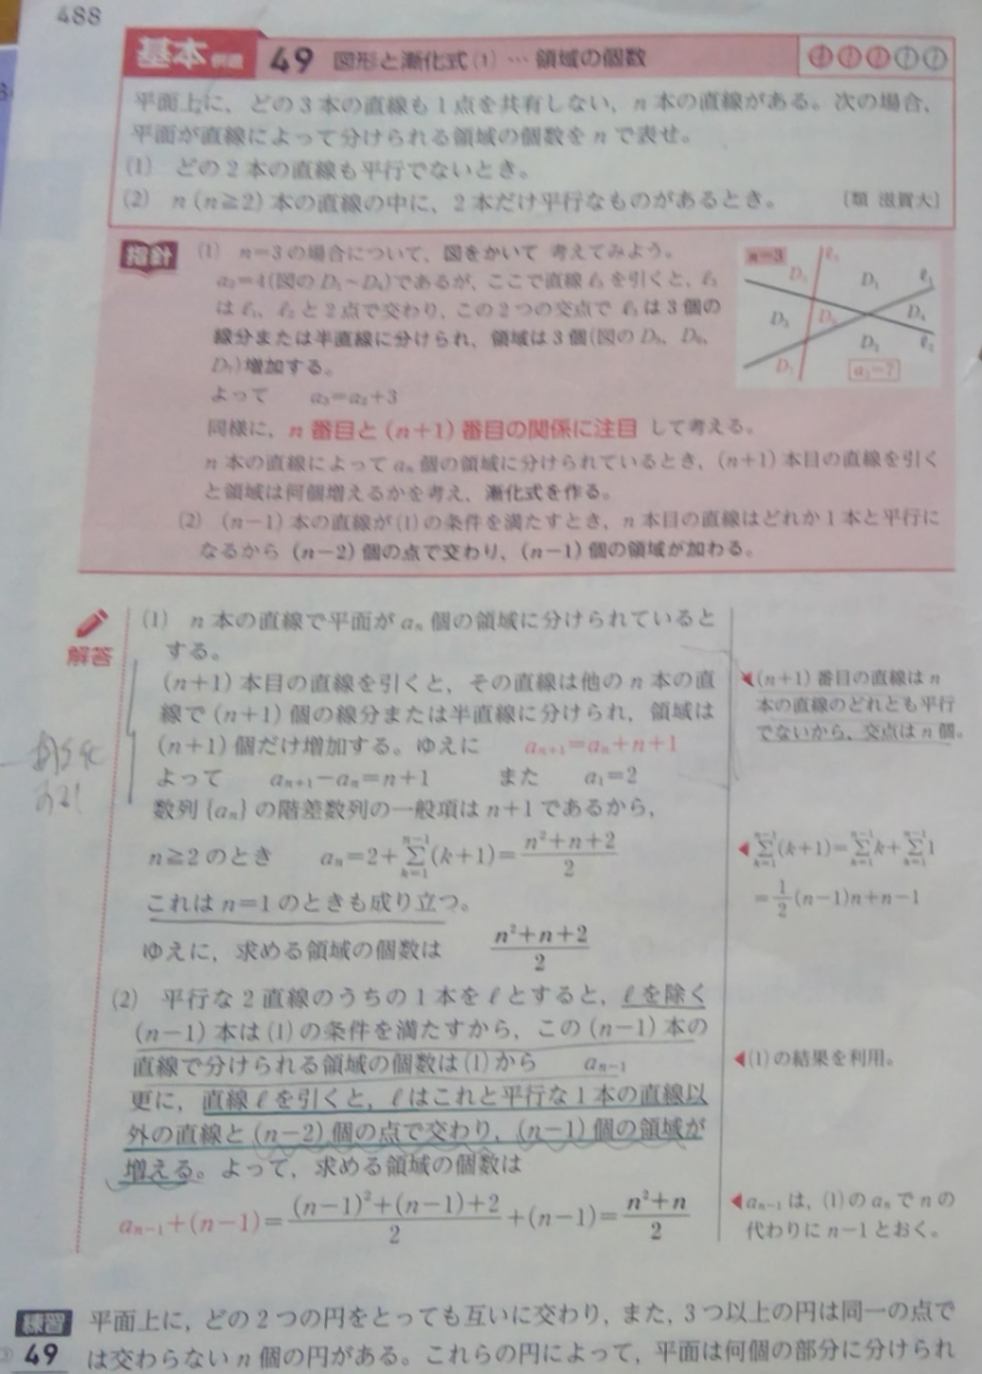 488
基本 例題 49 図形と漸化式(1) … 領域の個数
平面上に，どの3本の直線も1点を共有しない，n本の直線がある。次の場合，
平面が直線によって分けられる領域の個数をnで表せ。
(1) どの2本の直線も平行でないとき。
(2) n(n≧2)本の直線の中に，2本だけ平行なものがあるとき。 〔類 滋賀大〕
指針 (1) n=3の場合について，図をかいて考えてみよう。
a₂=4(図のD₁〜D₄)であるが，ここで直線ℓ₃を引くと，ℓ₃
はℓ₁，ℓ₂と2点で交わり，この2つの交点でℓ₃は3個の
線分または半直線に分けられ，領域は3個(図のD₅，D₆，
D₇)増加する。
よって a₃=a₂+3
同様に，n番目と(n+1)番目の関係に注目 して考える。
n本の直線によってaₙ個の領域に分けられているとき，(n+1)本目の直線を引く
と領域は何個増えるかを考え，漸化式を作る。
(2) (n−1)本の直線が(1)の条件を満たすとき，n本目の直線はどれか1本と平行に
なるから (n−2)個の点で交わり，(n−1)個の領域が加わる。
n=3
ℓ₃
D₁
ℓ₁
D₃
D₆
D₄
D₂
ℓ₂
D₇
a₃=7
解答
(1) n本の直線で平面がaₙ個の領域に分けられていると
する。
(n+1)本目の直線を引くと，その直線は他のn本の直
線で(n+1)個の線分または半直線に分けられ，領域は
(n+1)個だけ増加する。ゆえに aₙ₊₁=aₙ+n+1
よって aₙ₊₁−aₙ=n+1 また a₁=2
数列{aₙ}の階差数列の一般項はn+1であるから，
n≧2のとき aₙ=2+∑_{k=1}^{n−1}(k+1)=(n²+n+2)/2
これはn=1のときも成り立つ。
ゆえに，求める領域の個数は (n²+n+2)/2
(2) 平行な2直線のうちの1本をℓとすると，ℓを除く
(n−1)本は(1)の条件を満たすから，この(n−1)本の
直線で分けられる領域の個数は(1)から aₙ₋₁
更に，直線ℓを引くと，ℓはこれと平行な1本の直線以
外の直線と(n−2)個の点で交わり，(n−1)個の領域が
増える。よって，求める領域の個数は
aₙ₋₁+(n−1)=((n−1)²+(n−1)+2)/2+(n−1)=(n²+n)/2
◀(n+1)番目の直線はn
本の直線のどれとも平行
でないから，交点はn個。
◀∑_{k=1}^{n−1}(k+1)=∑_{k=1}^{n−1}k+∑_{k=1}^{n−1}1
=½(n−1)n+n−1
◀(1)の結果を利用。
◀aₙ₋₁は，(1)のaₙでnの
代わりにn−1とおく。
練習 平面上に，どの2つの円をとっても互いに交わり，また，3つ以上の円は同一の点で
49 は交わらないn個の円がある。これらの円によって，平面は何個の部分に分けられ